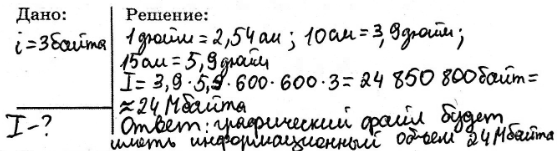 Дано:
Решение:
i=3байта
1дюйм=2,54см; 10см=3,9дюйм;
15см=5,9дюйм
I=3,9·5,9·600·600·3=24 850 800байт=
≈24Мбайта
I-?
Ответ: графический файл будет
иметь информационный объем 24Мбайта